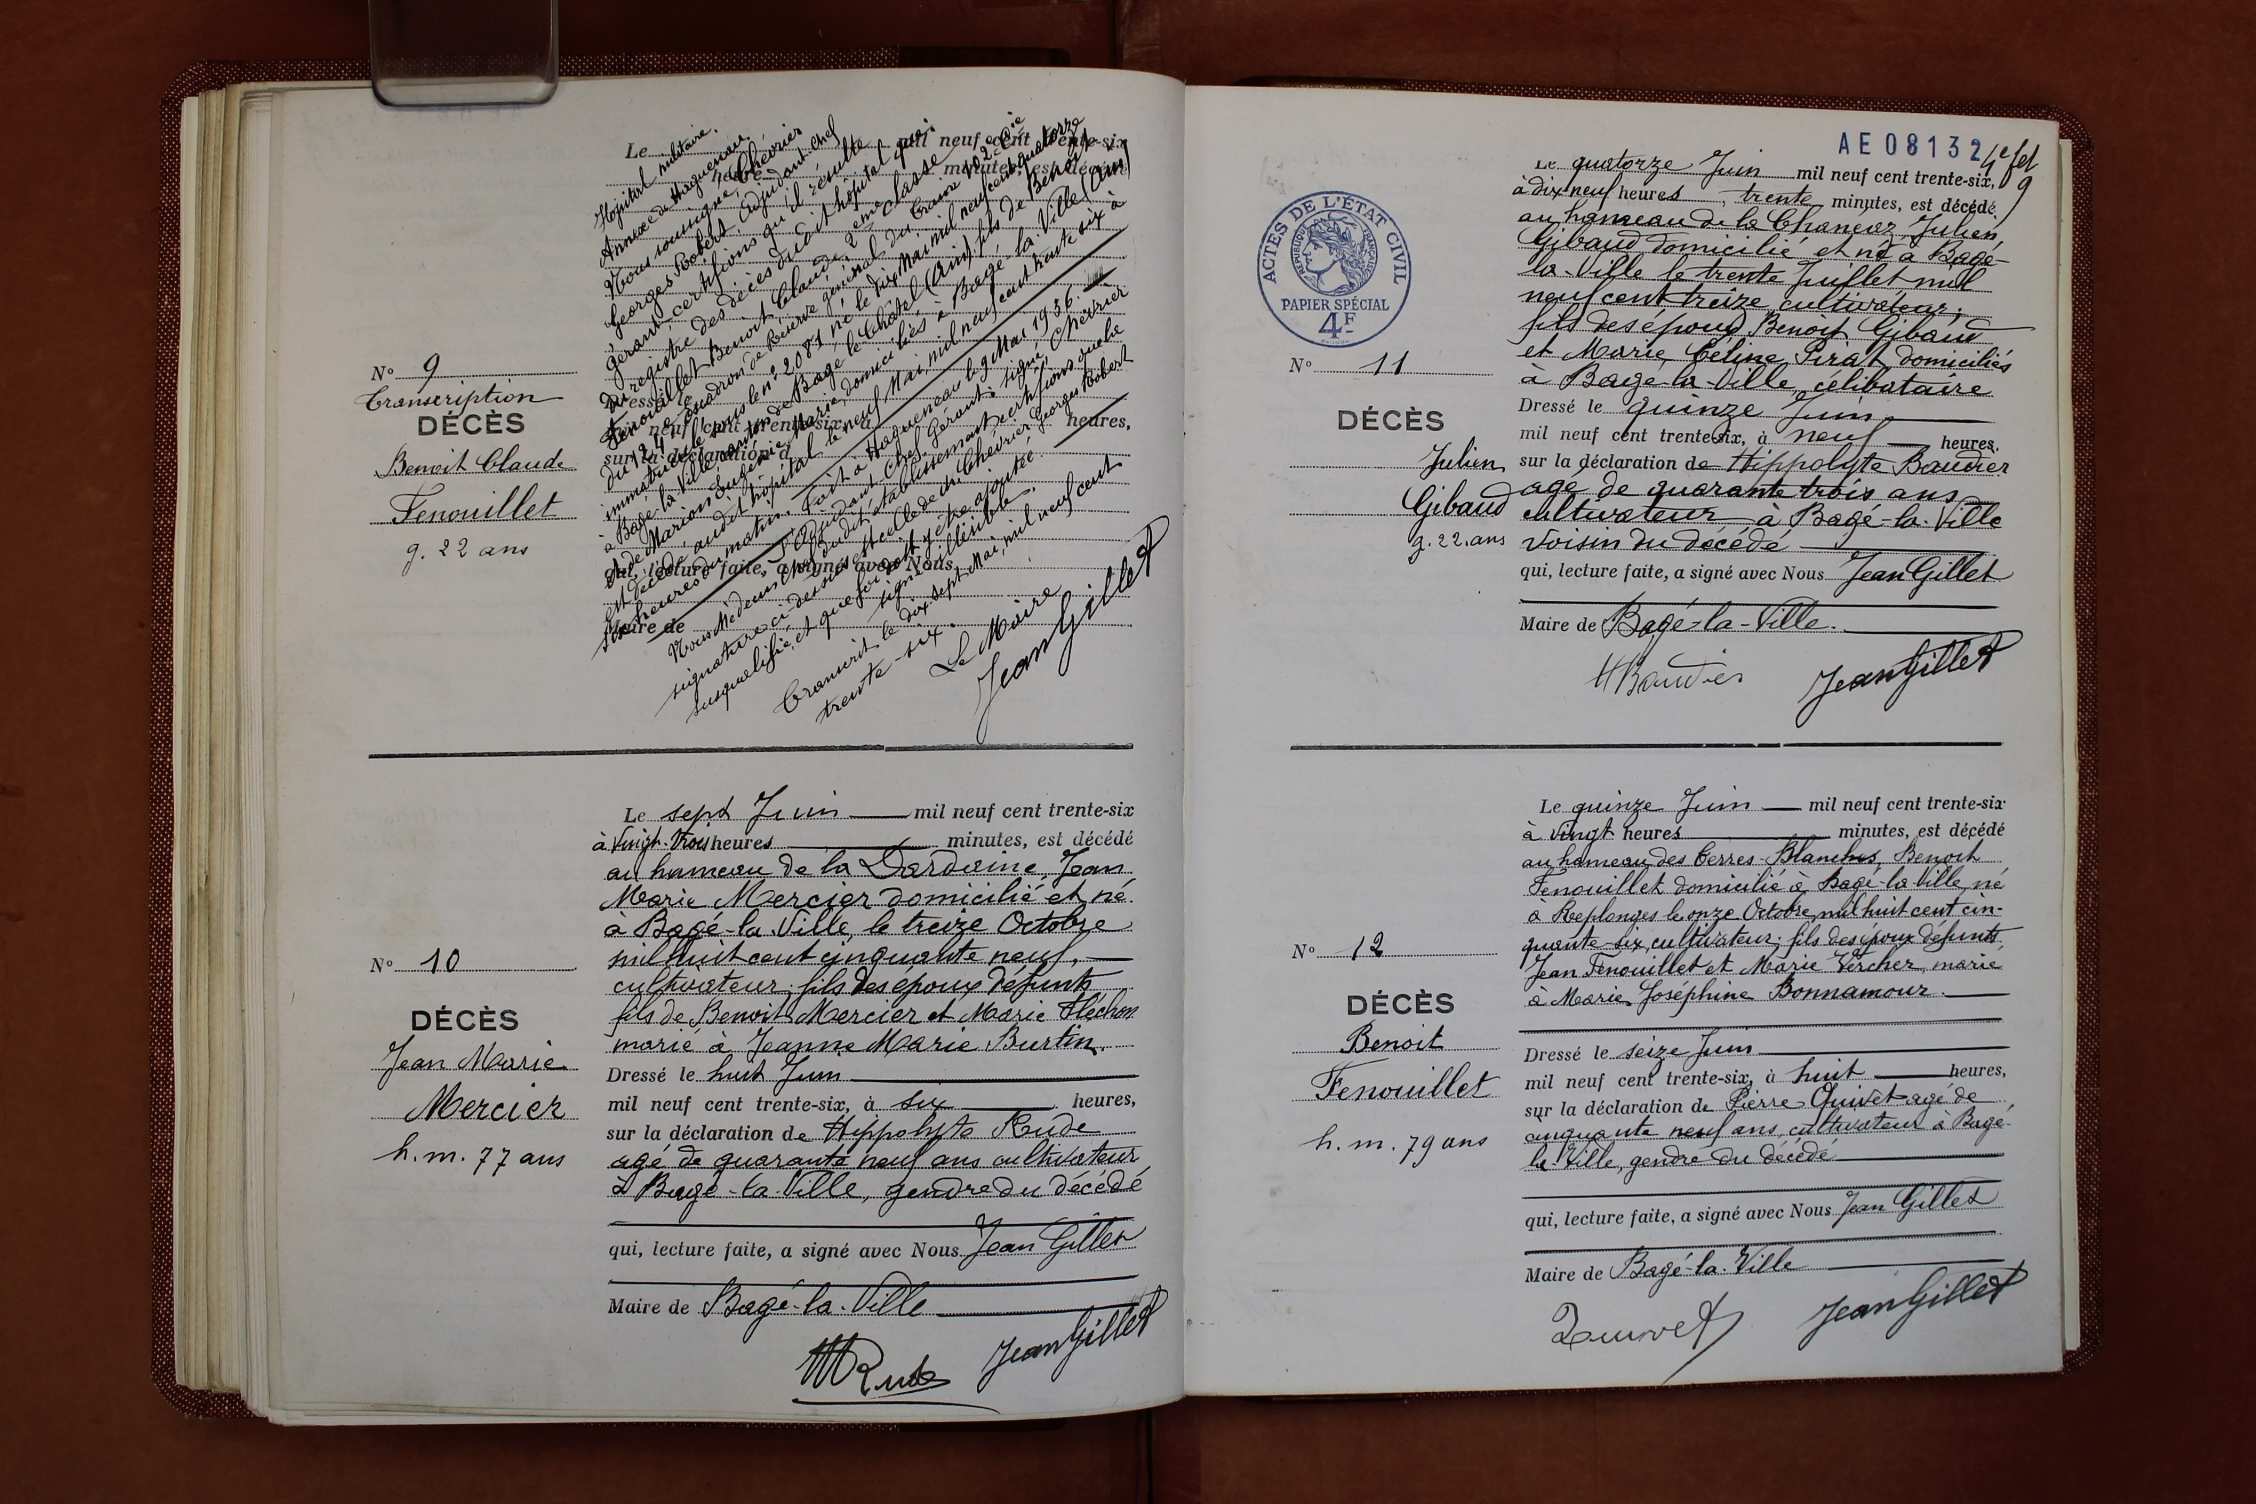 N° 9
Transcription
DÉCÈS
Benoit Claude
Fenouillet
g. 22 ans
Le mil neuf cent trente-six
heures minutes, est décédé
Hôpital militaire.
Annexe de Haguenau
Nous soussigné, Chévrier
Georges Robert. Adjudant Chef
gérant certifions qu'il résulte
du registre des décès dudit hôpital que:
Fenouillet Benoit Claude, 2eme classe
immatriculé sous le n° 2081 né le dix Mai mil neuf cent quatorze
à Bagé la Ville canton de Bagé le Châtel (Ain) fils de Benoit
et de Marion Eugénie Marie, domiciliés à Bagé la Ville (Ain)
est décédé audit hôpital le neuf Mai mil neuf cent trente six à
six heures du matin. Fait à Haguenau le 9 Mai 1936.
L'Adjudant Chef Gérant: signé, Chévrier
Nous Médecin Chef dudit établissement certifions que la
signature ci-dessus est celle de Mr Chévrier Georges Robert
susqualifié, et que foi doit y être ajoutée.
signé: illisible.
Transcrit le dix sept Mai, mil neuf cent
trente-six.
Le Maire
Jean Gillet
Dressé le
mil neuf cent trente-six, à heures,
sur la déclaration d
qui, lecture faite, a signé avec Nous
Maire de
N° 10
DÉCÈS
Jean Marie
Mercier
h. m. 77 ans
Le sept Juin mil neuf cent trente-six
à Vingt-trois heures minutes, est décédé
au hameau de la Dardaine, Jean
Marie Mercier domicilié et né
à Bagé-la-Ville, le treize Octobre
mil huit cent cinquante neuf,
cultivateur; fils des époux défunts
fils de Benoit Mercier et Marie Fléchon
marié à Jeanne Marie Burtin.
Dressé le huit Juin
mil neuf cent trente-six, à six heures,
sur la déclaration de Hippolyte Rude
agé de quarante neuf ans cultivateur
à Bagé-la-Ville, gendre du décédé
qui, lecture faite, a signé avec Nous Jean Gillet
Maire de Bagé-la-Ville
Rude Jean Gillet
AE 08132
4e fet
9
ACTES DE L'ÉTAT CIVIL
RÉPUBLIQUE FRANÇAISE
PAPIER SPÉCIAL
4F
N° 11
DÉCÈS
Julien
Gibaud
g. 22. ans
Le quatorze Juin mil neuf cent trente-six,
à dix neuf heures trente minutes, est décédé
au hameau de la Chanéaz, Julien
Gibaud domicilié et né à Bagé-
la-Ville le trente Juillet mil
neuf cent treize cultivateur;
fils des époux Benoit Gibaud
et Marie Céline Pirat domiciliés
à Bagé-la-Ville, célibataire
Dressé le quinze Juin
mil neuf cent trente-six, à neuf heures,
sur la déclaration de Hippolyte Baudier
agé de quarante trois ans
cultivateur à Bagé-la-Ville
voisin du décédé
qui, lecture faite, a signé avec Nous Jean Gillet
Maire de Bagé-la-Ville.
HBaudier Jean Gillet
N° 12
DÉCÈS
Benoit
Fenouillet
h. m. 79 ans
Le quinze Juin mil neuf cent trente-six
à vingt heures minutes, est décédé
au hameau des Terres-Blanches, Benoit
Fenouillet domicilié à Bagé-la-Ville, né
à Replonges le onze Octobre mil huit cent cin-
quante-six, cultivateur; fils des époux défunts
Jean Fenouillet et Marie Vercher, marié
à Marie Joséphine Bonnamour.
Dressé le seize Juin
mil neuf cent trente-six, à huit heures,
sur la déclaration de Pierre Quivet agé de
cinquante neuf ans, cultivateur à Bagé-
la-Ville, gendre du décédé
qui, lecture faite, a signé avec Nous Jean Gillet
Maire de Bagé-la-Ville
Quivet Jean Gillet